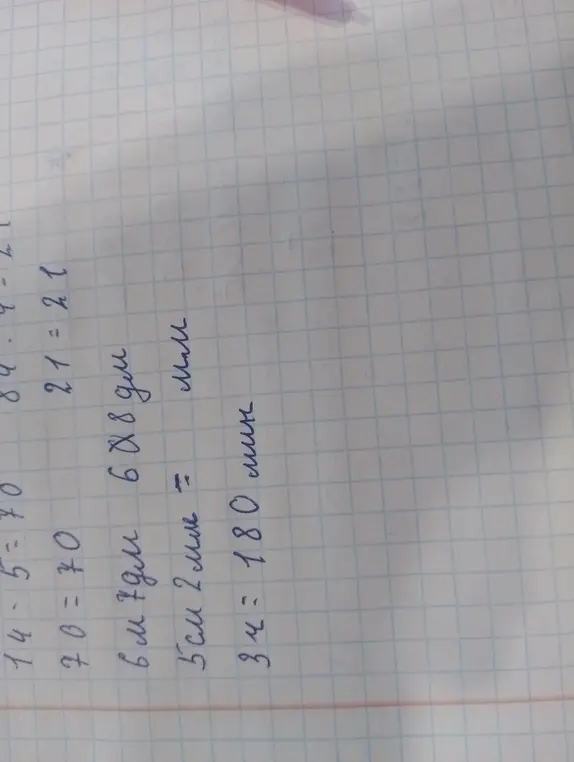 14 · 5 = 70
70 = 70 21 = 21
6 м 7 дм 6 8 дм
5 см 2 мм = мм
3 ч = 180 мин